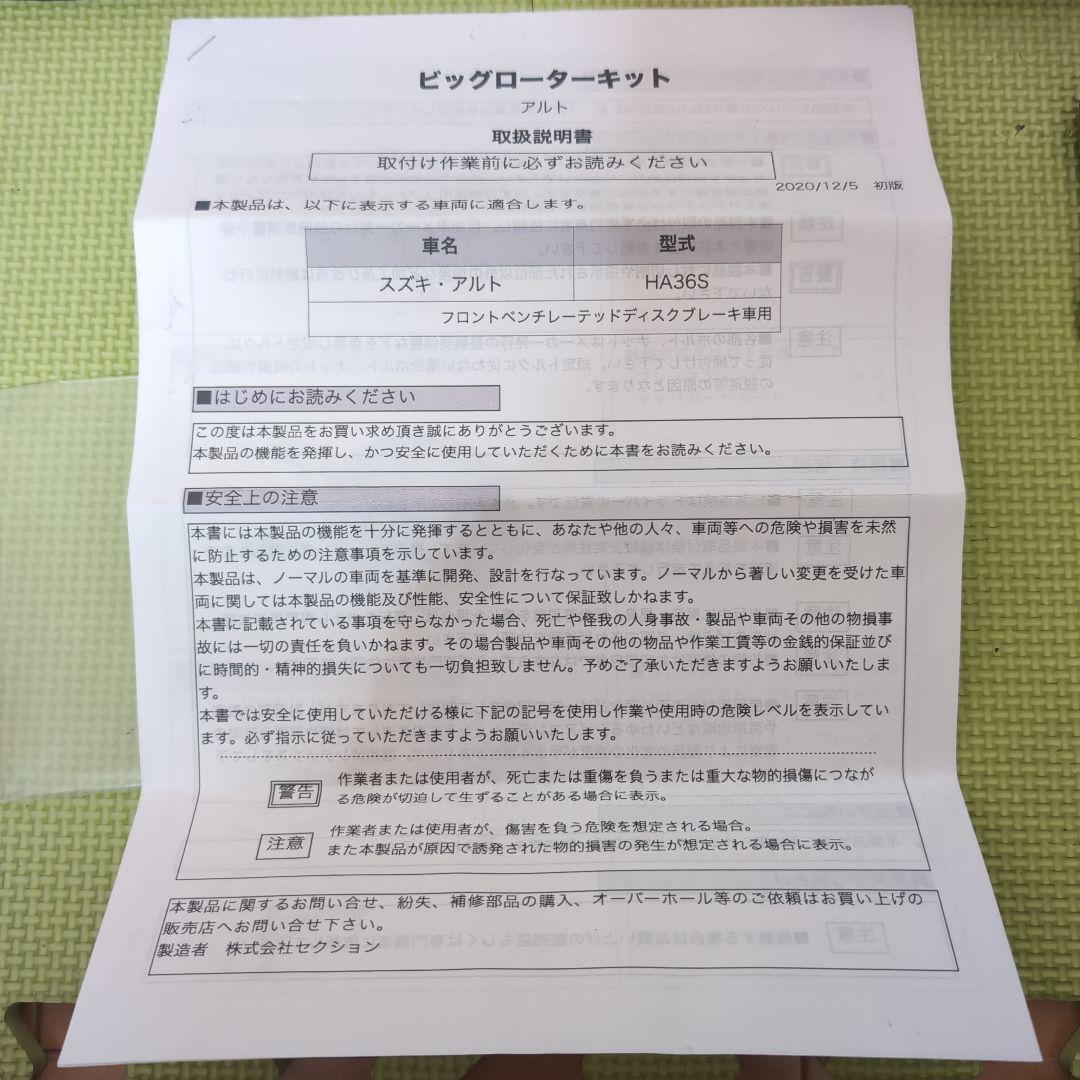 ビッグローターキット
アルト
取扱説明書
取付け作業前に必ずお読みください
2020/12/5 初版
■本製品は、以下に表示する車両に適合します。
車名 型式
スズキ・アルト HA36S
フロントベンチレーテッドディスクブレーキ車用
■はじめにお読みください
この度は本製品をお買い求め頂き誠にありがとうございます。
本製品の機能を発揮し、かつ安全に使用していただくために本書をお読みください。
■安全上の注意
本書には本製品の機能を十分に発揮するとともに、あなたや他の人々、車両等への危険や損害を未然
に防止するための注意事項を示しています。
本製品は、ノーマルの車両を基準に開発、設計を行なっています。ノーマルから著しい変更を受けた車
両に関しては本製品の機能及び性能、安全性について保証致しかねます。
本書に記載されている事項を守らなかった場合、死亡や怪我の人身事故・製品や車両その他の物損事
故には一切の責任を負いかねます。その場合製品や車両その他の物品や作業工賃等の金銭的保証並び
に時間的・精神的損失についても一切負担致しません。予めご了承いただきますようお願いいたしま
す。
本書では安全に使用していただける様に下記の記号を使用し作業や使用時の危険レベルを表示してい
ます。必ず指示に従っていただきますようお願いいたします。
警告 作業者または使用者が、死亡または重傷を負うまたは重大な物的損傷につなが
る危険が切迫して生ずることがある場合に表示。
注意 作業者または使用者が、傷害を負う危険を想定される場合。
また本製品が原因で誘発された物的損害の発生が想定される場合に表示。
本製品に関するお問い合せ、紛失、補修部品の購入、オーバーホール等のご依頼はお買い上げの
販売店へお問い合せ下さい。
製造者 株式会社セクション